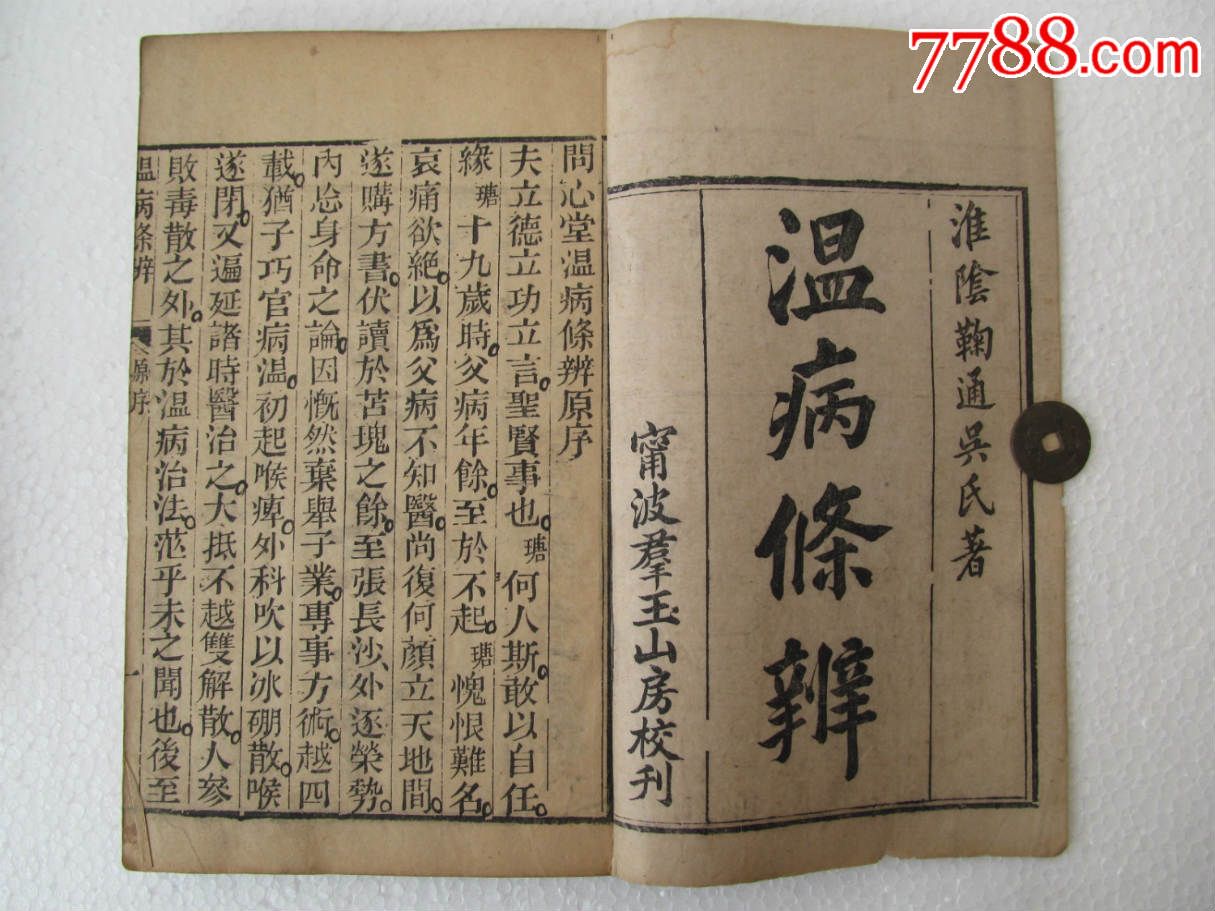 7788.com
淮陰鞠通吳氏著
温病條辨
甯波羣玉山房校刊
問心堂温病條辨原序
夫立德立功立言。聖賢事也。瑭何人斯。敢以自任。
緣瑭十九歲時。父病年餘。至於不起。瑭愧恨難名。
哀痛欲絶。以爲父病不知醫。尚復何顏立天地間。
遂購方書。伏讀於苫塊之餘。至張長沙。外逐榮勢。
內忘身命之論。因慨然棄舉子業。專事方術。越四
載。猶子巧官病温。初起喉痺。外科吹以冰硼散。喉
遂閉。又遍延諸時醫治之。大抵不越雙解散。人參
敗毒散之外。其於温病治法。茫乎未之聞也。後至
温病條辨 原序 一